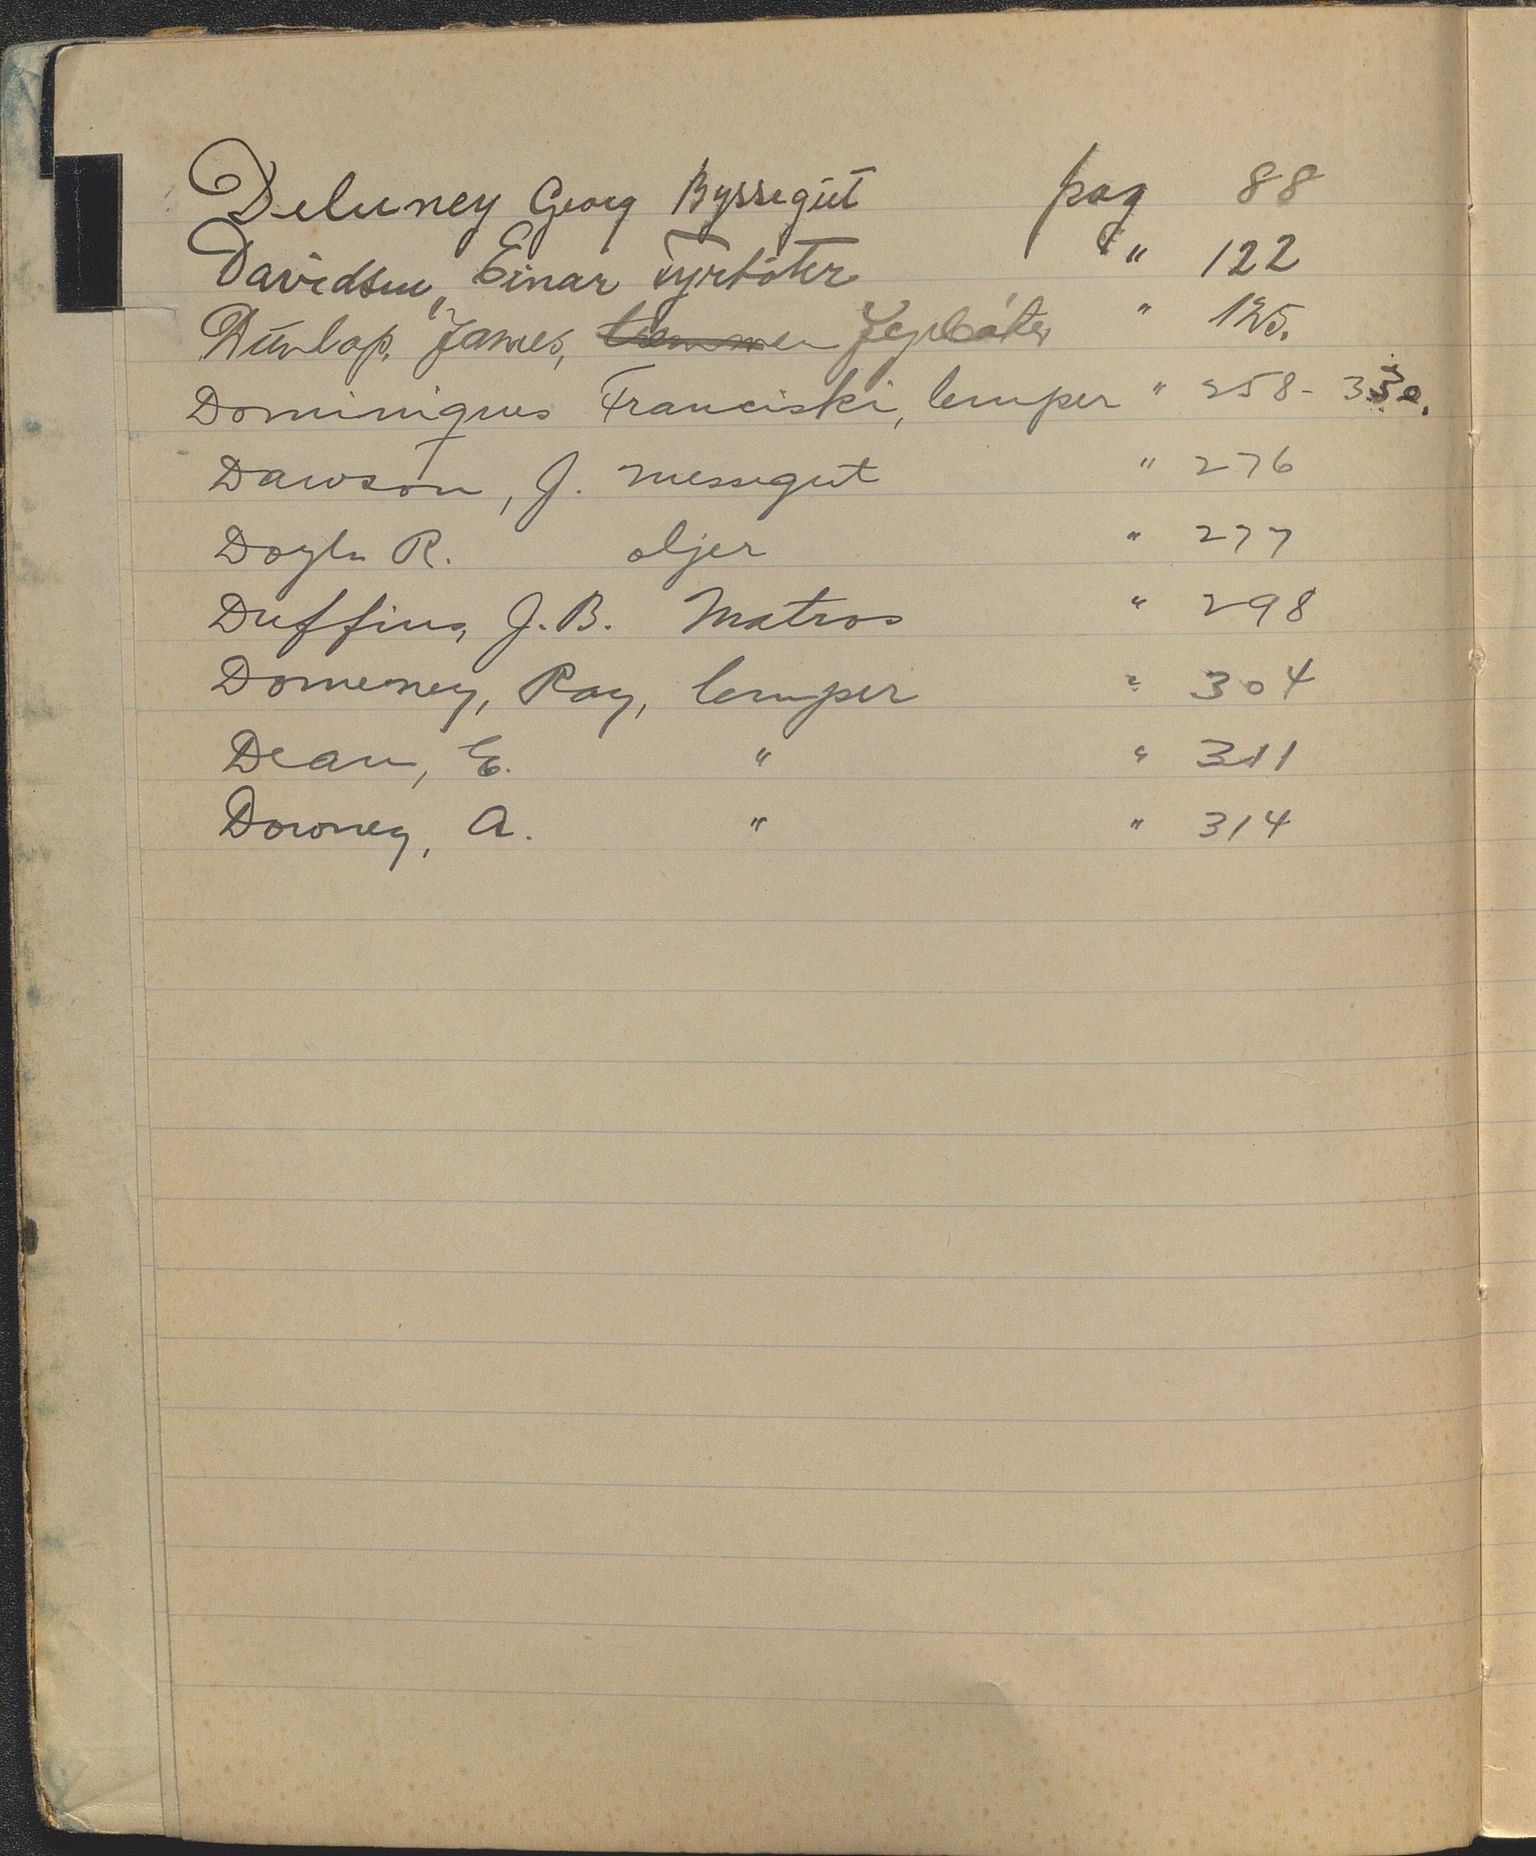 Deluney Georg Byssegut pag 88
Davidsen, Einar Fyrbøter " 122
Dunlap, James, Fyrbøter " 125.
Dominiques Franciski, lemper " 258-330.
Dawson, J. messegut " 276
Doyle R. oljer " 277
Duffins, J.B. Matros " 298
Domeney, Ray, lemper " 304
Dean, E. " " 311
Downey, A. " " 314